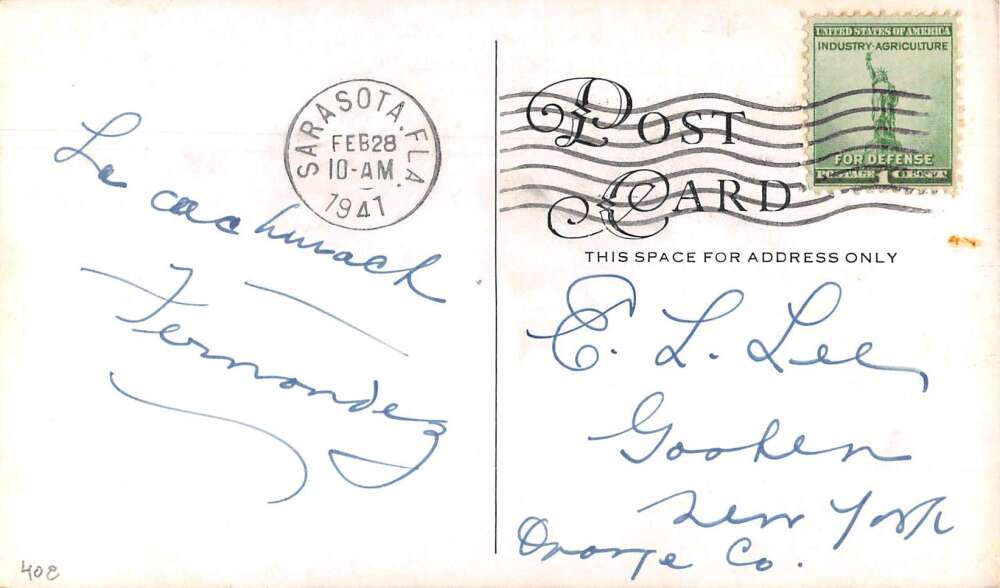 SARASOTA, FLA.
FEB 28
10-AM
1941
La cacahuach
Fernandez
408
POST
CARD
THIS SPACE FOR ADDRESS ONLY
UNITED STATES OF AMERICA
INDUSTRY·AGRICULTURE
FOR DEFENSE
POSTAGE 1
E. L. Lee,
Goshen
New York
Orange Co.